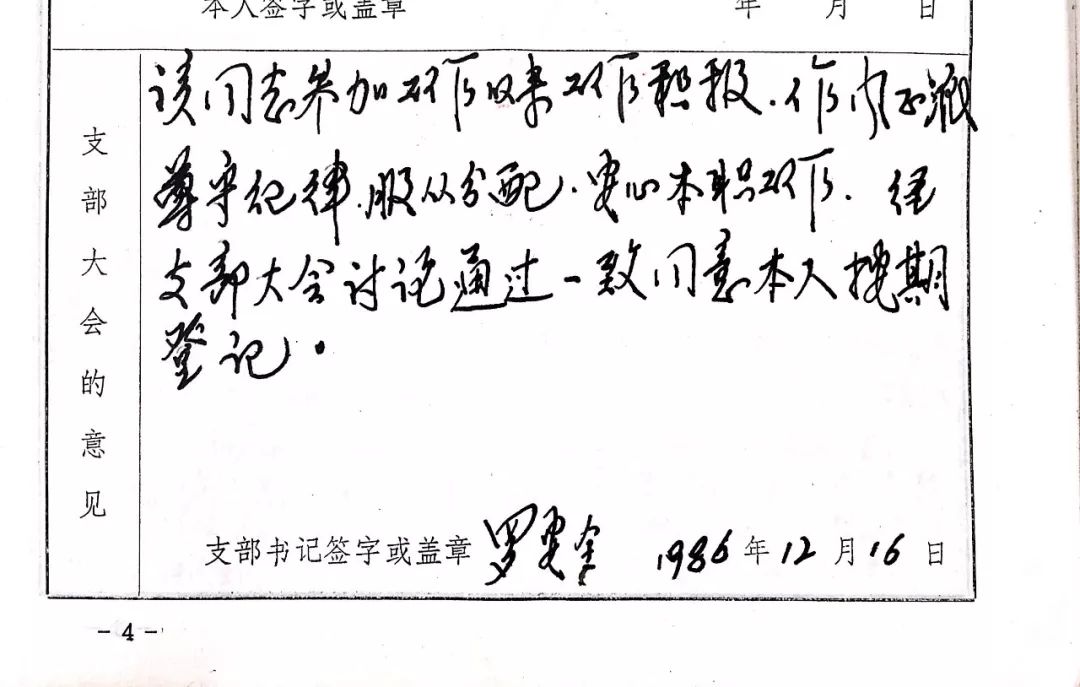 本人签字或盖章 年 月 日
支部大会的意见
该同志参加工作以来工作积极.作风正派
尊守纪律.服从分配.安心本职工作.经
支部大会讨论通过一致同意本人按期
登记.
支部书记签字或盖章 罗 1986年12月16日
-4-